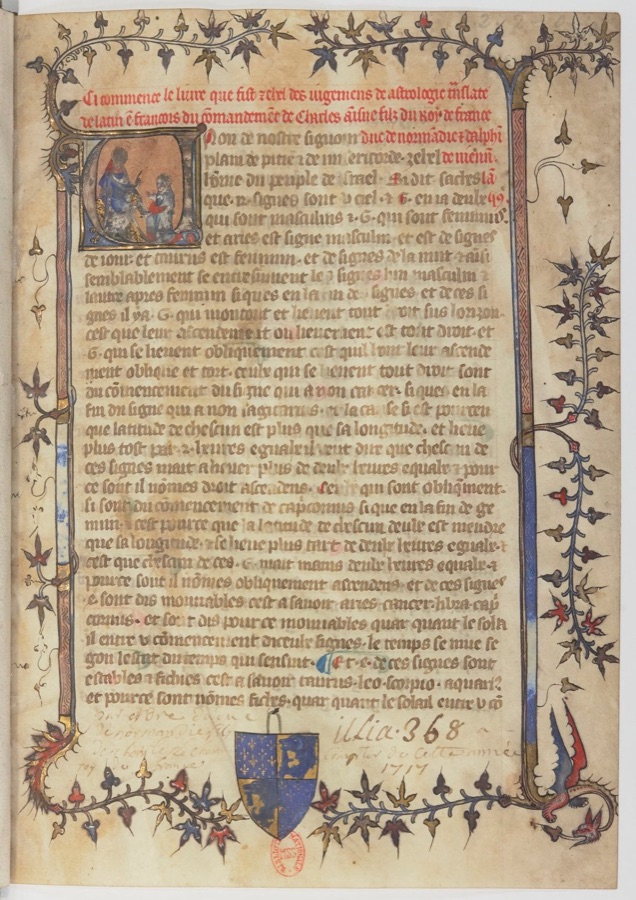 Ci commence le livre que fist zehel des iugemens de astrologie translate
de latin en francois du commandement de Charles ainsne filz du Roy de france
duc de normandie z dalphin
de vienn.
Non de nostre signour
plain de pitie z de misericorde. zehel
home du peuple de israel. Et dit saches
que .xii. signes sont v ciel. z .6. en ia deulz
qui sont masculins z .6. qui sont feminins.
et aries est signe masculin. et est de signes
de iour. et taurus est feminin. et de signes de la nuit z ausi
semblablement se entresiuuent le signes lun masculin z
lautre apres feminin si ques en la fin de signes. et de ces si
gnes il y a .6. qui montent et lieuent tout droit sus lorizon
cest que leur ascendement ou lieuement est tout droit. et
.6. qui se lieuent obliquement cest quil font leur ascende
ment oblique et tort. ceulz qui se lieuent tout droit sont
du commencement du signe qui a non cancer. si ques en la
fin du signe qui a non sagitarius. et la cause si est pource
que latitude de chescun est plus que sa longitude. et lieue
plus tost par .2. heures equales il veut dire que chescun de
ces signes mait a lieuer plus de deulz heures equales z pour
ce sont il nommes droit ascendens. Ceulz qui sont obliquement.
si sont du commencement de capricornus si que en la fin de ge
mini. cest pource que la latitude de chescun deulz est mendre
que sa longitude. z se lieue plus tart de deulz heures equales. z
cest que chescun de ces .6. mait mains deulz heures equales. z
pource sont il nommes obliquement ascendens. et de ces signes
.4. sont dis mouuables cest a sauoir aries cancer. libra cap
cornus. et sont dis pour ce mouuables quar quant le solail
il entre v commencement diceulz signes. le temps se mue se
gon lestat du temps qui sensuit. Et .4. de ces signes sont
estables z fichies cest a sauoir taurus. leo. scorpio. aquarius
et pource sont nommes fichies. quar quant le solail entre v com
illia. 368
1717